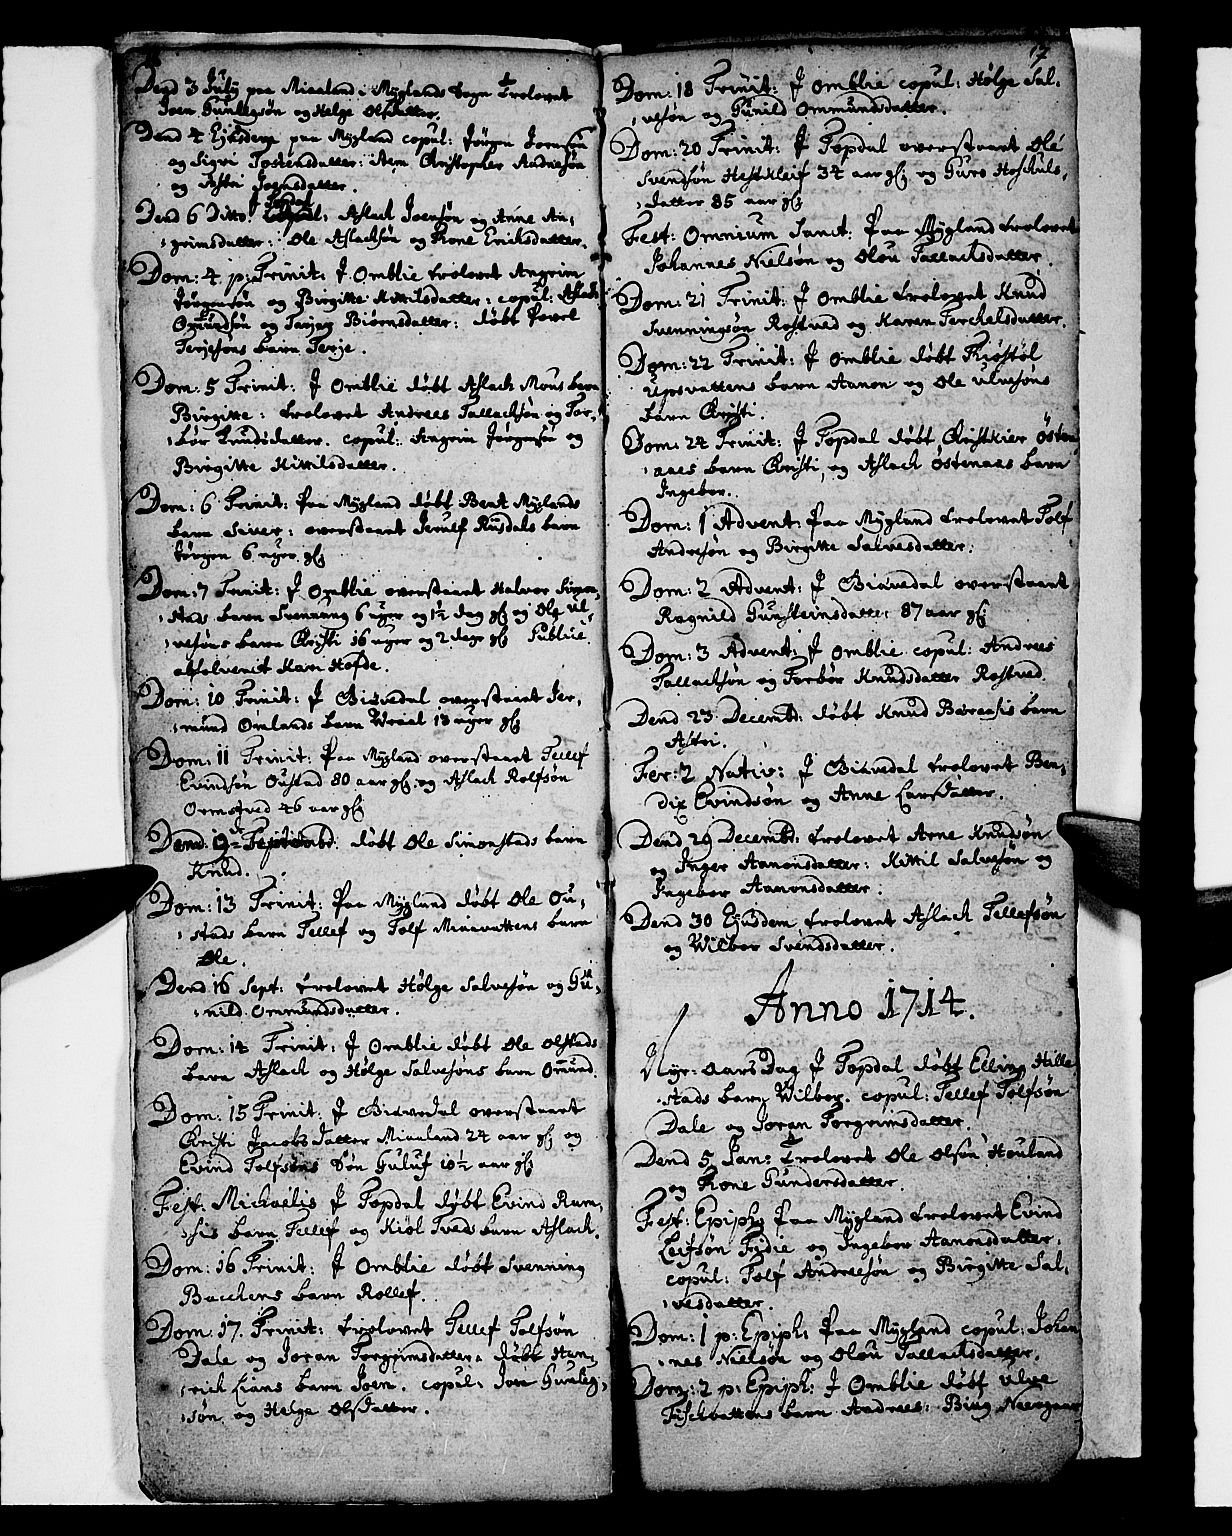 Dend 3 July paa Miaaland i Myglands Sogn Trolovet
Joen Gunlegsøn og Helge Olsdatter.
Dend 4 Ejusdem paa Mygland copul: Jørgen Joensøn
og Sigri Tostensdatter: item Christopher Andresøn
og Astri Joensdatter.
Dend 6 Ditto: copul: Aslach Joensøn og Anne An-
grimsdatter: Ole Aslachsøn og Tone Erichsdatter.
Dom: 4 p: Trinit: J Omblie trolovet Angrim
Jørgensøn og Birgitte Kittilsdatter: copul: Aslach
Omundsøn og Tarjer Biørnsdatter: døbt Povel
Terjesøns barn Terje.
Dom: 5 Trinit: J Omblie døbt Aslach Mous barn
Birgitte: trolovet Andrees Tallachsøn og Tor-
bor Knudsdatter. copul: Angrim Jørgensøn og
Birgitte Kittilsdatter.
Dom: 6 Trinit: Paa Mygland døbt Bent Myglands
barn Siver: overstaaet Jerulf Rusdals barn
Jørgen 6 uger gl
Dom: 7 Trinit: J Omblie overstaaet Halvor Simon-
stads barn Svenning 6 uger og 1½ dag gl og Ole Ul-
vesøns barn Christi 16 uger og 2 dage gl Publice
absolverit Kari Hofde.
Dom: 10 Trinit: J Giøvedal overstaaet Jer-
mund Omlands barn Wraal 13 uger gl
Dom: 11 Trinit: Paa Mygland overstaaet Tellef
Evindsøn Oustad 80 aar gl. og Aslach Rolfsøn
Ormstved 46 aar gl
Dend 9de Septembd: døbt Ole Simonstads barn
Knud.
Dom: 13 Trinit: Paa Mygland døbt Ole Ou-
stads barn Tellef og Tolf Miøvattens barn
Ole.
Dend 16 Sept: trolovet Hølge Salvesøn og Gu-
nild Ommundsdatter.
Dom: 14 Trinit: J Omblie døbt Ole Olstads
barn Aslach og Hølge Salvesøns barn Omund.
Dom: 15 Trinit: J Giøvedal overstaaet
Christi Jacobsdatter Miaaland 24 aar gl og
Evind Tolfsøns Søn Guluf 10½ aar gl
Fest: Michaelis J Topdal døbt Evind Ram-
ses barn Tellef og Kiøl Tveds barn Aslach.
Dom: 16 Trinit: J Omblie døbt Svenning
Bacchens barn Rollef.
Dom: 17. Trinit: trolovet Tellef Tolfsøn
Dale og Joran Torgrimsdatter. døbt Hen-
rich Lians barn Joen. copul: Joen Gunleg-
søn og Helge Olsdatter.
17
Dom: 18 Trinit: J Omblie copul: Hølge Sal-
vesøn og Gunild Ommundsdatter.
Dom: 20 Trinit: J Topdal overstaaet Ole
Svendsøn Hestkleif 34 aar gl; og Guro Hoskuls-
datter 85 aar gl
Fest: Omnium Sanct: Paa Mygland trolovet
Johannes Nielsøn og Olou Tallachsdatter.
Dom: 21 Trinit: J Omblie trolovet Knud
Svenningsøn Rostved og Karen Terchelsdatter.
Dom: 22 Trinit: J Omblie døbt Kiøstøl
Upsvattens barn Aanon og Ole Ulvesøns
barn Christi.
Dom: 24 Trinit: J Topdal døbt Christfier Østen-
aaes barn Christi, og Aslach Østenaaes barn
Ingebor.
Dom: 1 Advent: Paa Mygland trolovet Tolf
Andresøn og Birgitte Salvesdatter.
Dom: 2 Advent: J Giøvedal overstaaet
Ragnild Gunsteinsdatter 87 aar gl
Dom: 3 Advent: J Omblie copul: Andrees
Tallachsøn og Torbør Knudsdatter Rostved.
Dend 23 Decembd: døbt Knud barn
Astri.
Fer: 2 Nativ: J Giøvedal trolovet Ben-
dix Evindsøn og Anne Larsdatter.
Dend 29 Decembd: trolovet Arne Knudsøn
og Inger Aanonsdatter: Kittil Salvesøn og
Ingebor Aanonsdatter.
Dend 30 Ejusdem trolovet Aslach Tellefsøn
og Wilbor Svendsdatter.
Anno 1714.
Nyt-aarsDag J Topdal døbt Elling Hille-
stads barn Wilbor. copul: Tellef Tolfsøn
Dale og Joran Torgrimsdatter.
Dend 5 Jan: trolovet Ole Olsøn Houland
og Tone Gundersdatter.
Fest: Epiph: Paa Mygland trolovet Evind
Leifsøn Fidie og Ingebor Aanonsdatter.
copul: Tolf Andresøn og Birgitte Sal-
vesdatter.
Dom: 1 p: Epiph: Paa Mygland copul: Johan-
nes Nielsøn og Olou Tallachsdatter.
Dom: 2 p: Epiph: J Omblie døbt Ulve
Fischvattens barn Andrees: